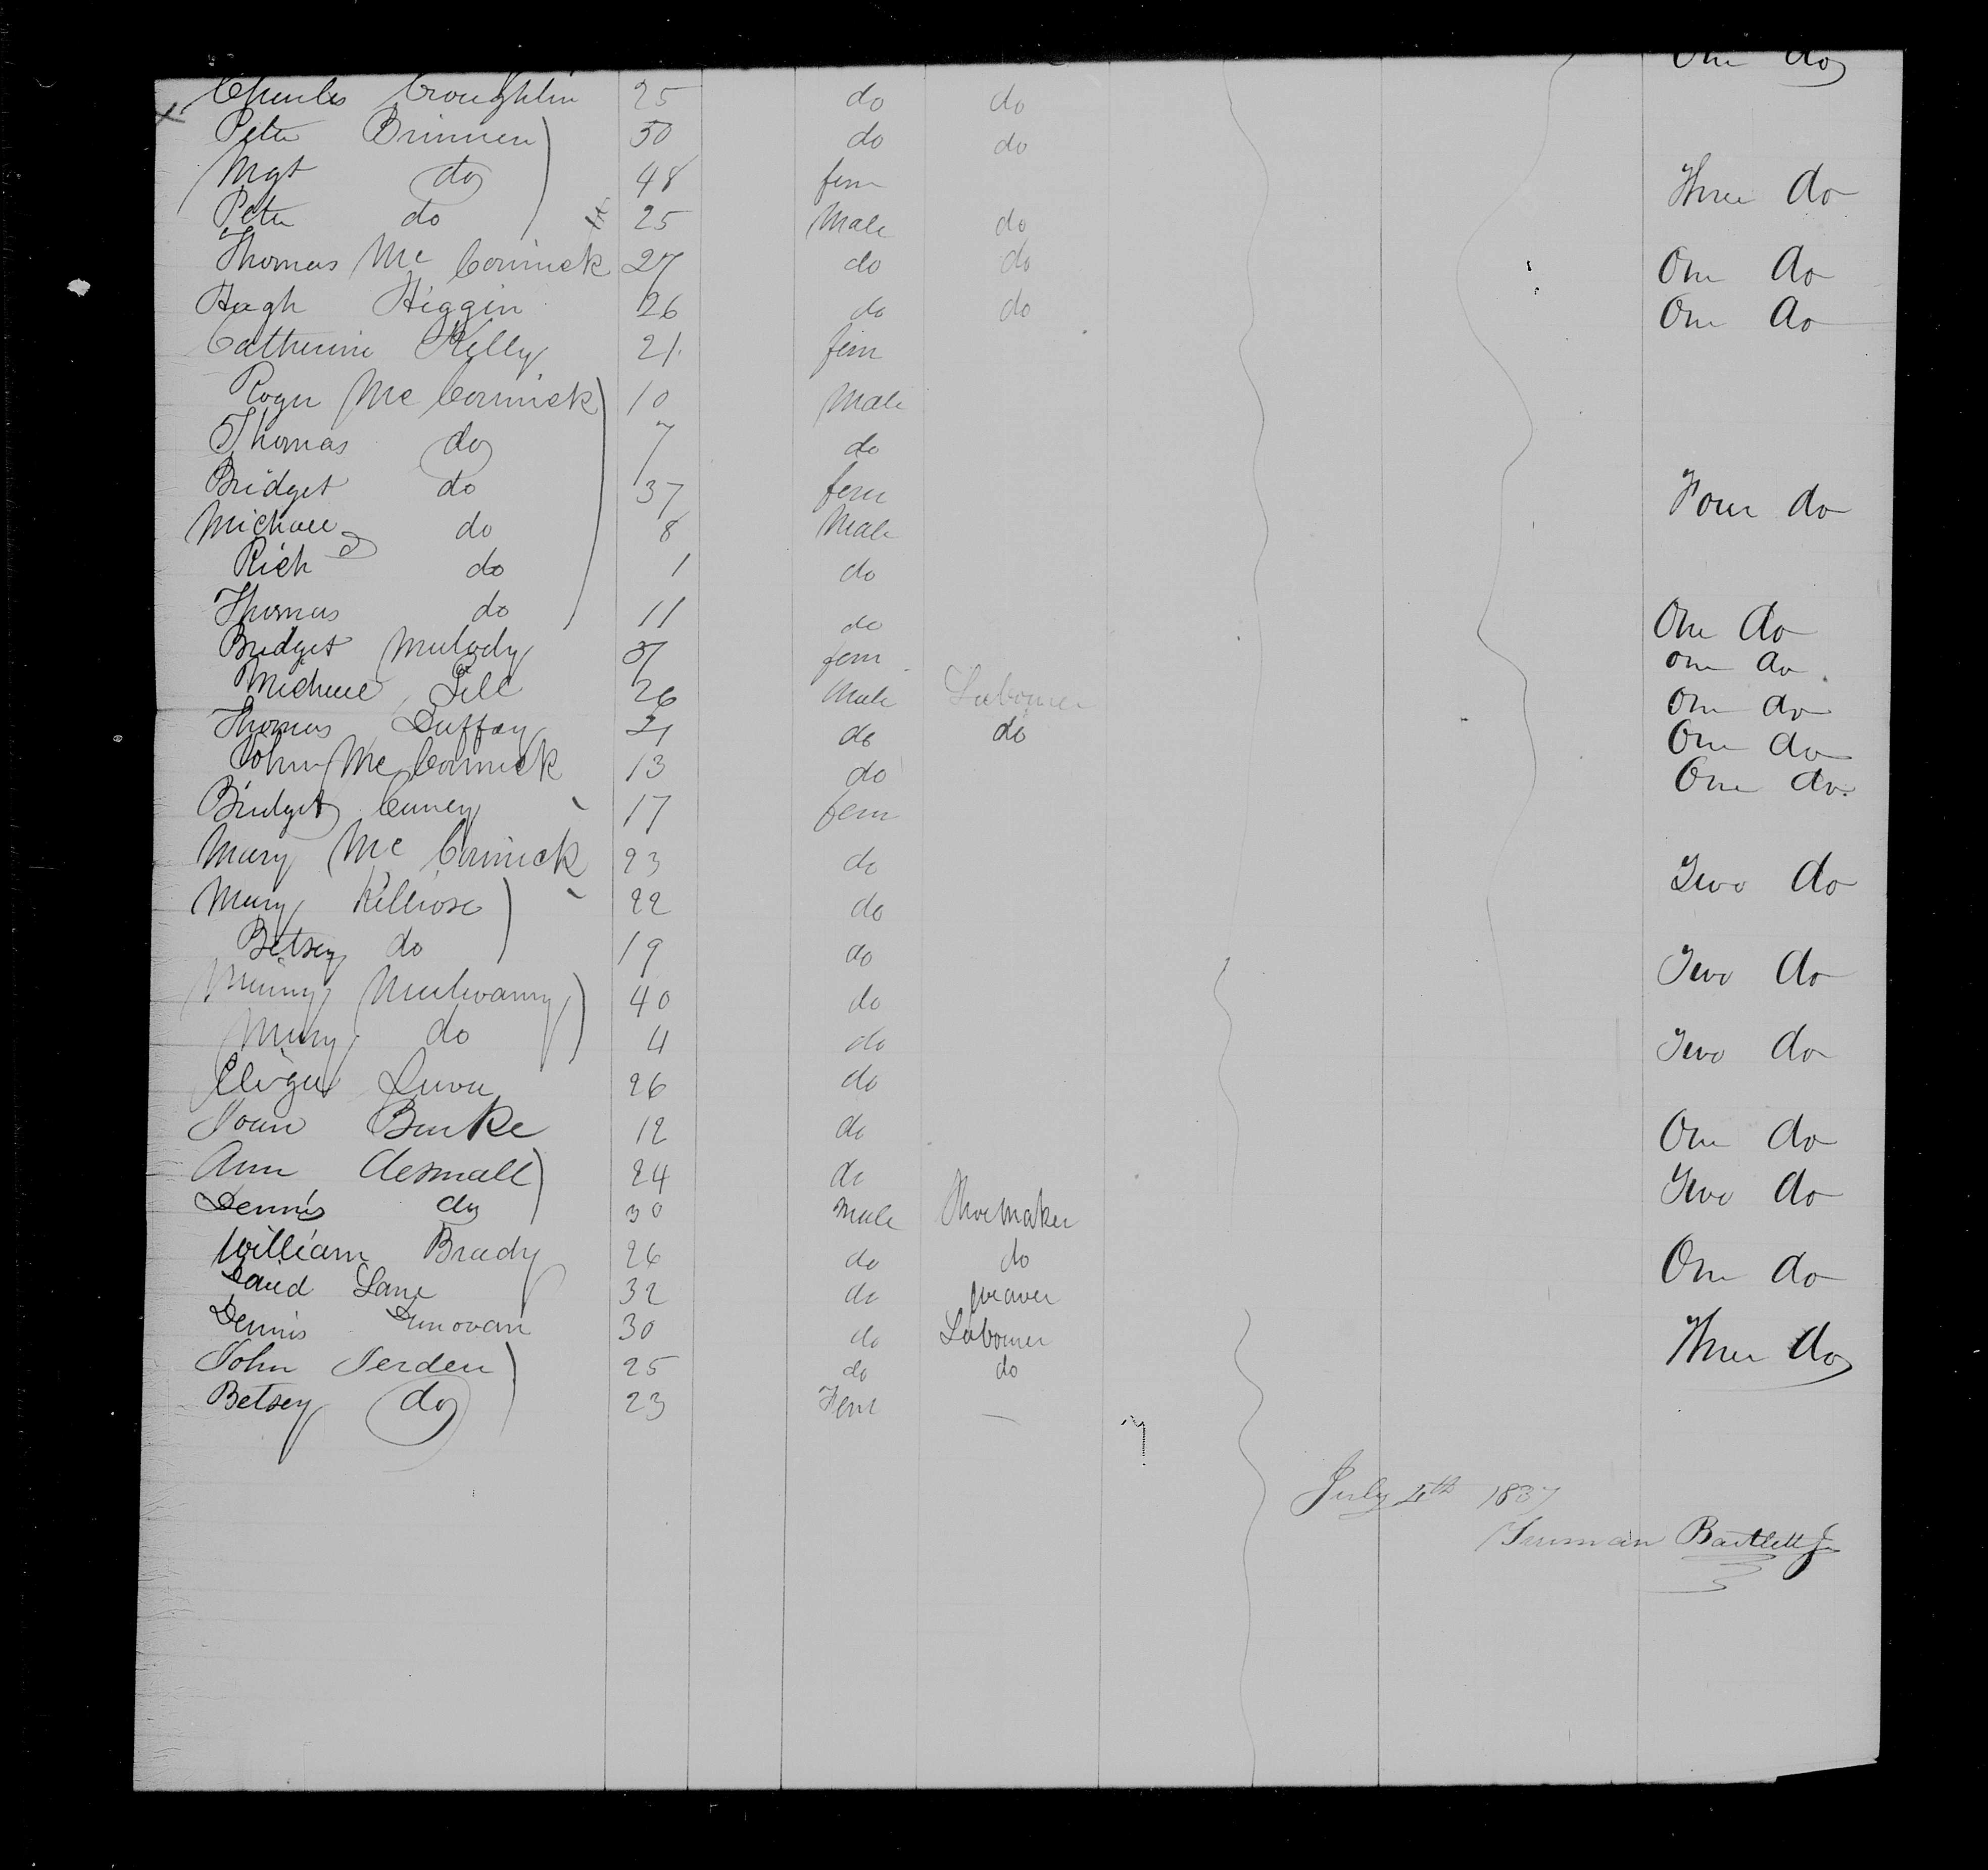 One do
Charles Coughlin 25 do do
Peter Brinnen 50 do do
Mgt do 48 fem Three do
Peter do 25 Male do
Thomas McCormick 27 do do One do
Hugh Higgin 26 do do One do
Catherine Kelly 21 fem
Roger McCormick 10 Male
Thomas do 7 do
Bridget do 37 fem Four do
Michael do 8 Male
Rich do 1 do
Thomas do 11 do One do
Bridget Mulody 37 fem one do
Michael Gill 26 Male Labourer One do
Thomas Duffay 21 do do One do
John McCormick 13 do One do
Bridget 17 fem
Mary McCormick 23 do Two do
Mary Killrose 22 do
Betsey do 19 do Two do
Mulvanny 40 do
Mary do 4 do Two do
26 do
Joan Burke 12 do One do
Ann 24 do
Dennis do 30 Male Shoemaker Two do
William Brady 26 do do One do
David Lane 32 do Weaver
Dennis Dunovan 30 do Labourer Three do
John Jerden 25 do do
Betsey do 23 Fem —
July 4th 1837
Truman Bartlett Jr